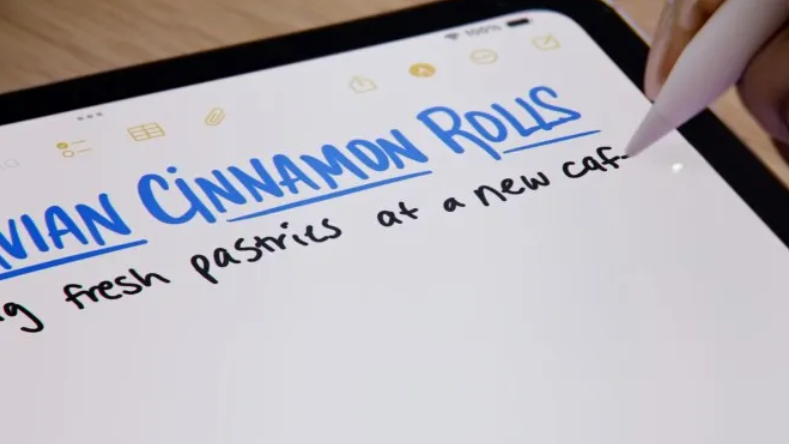 100%
VIAN CINNAMON ROLLS
g fresh pastries at a new caf